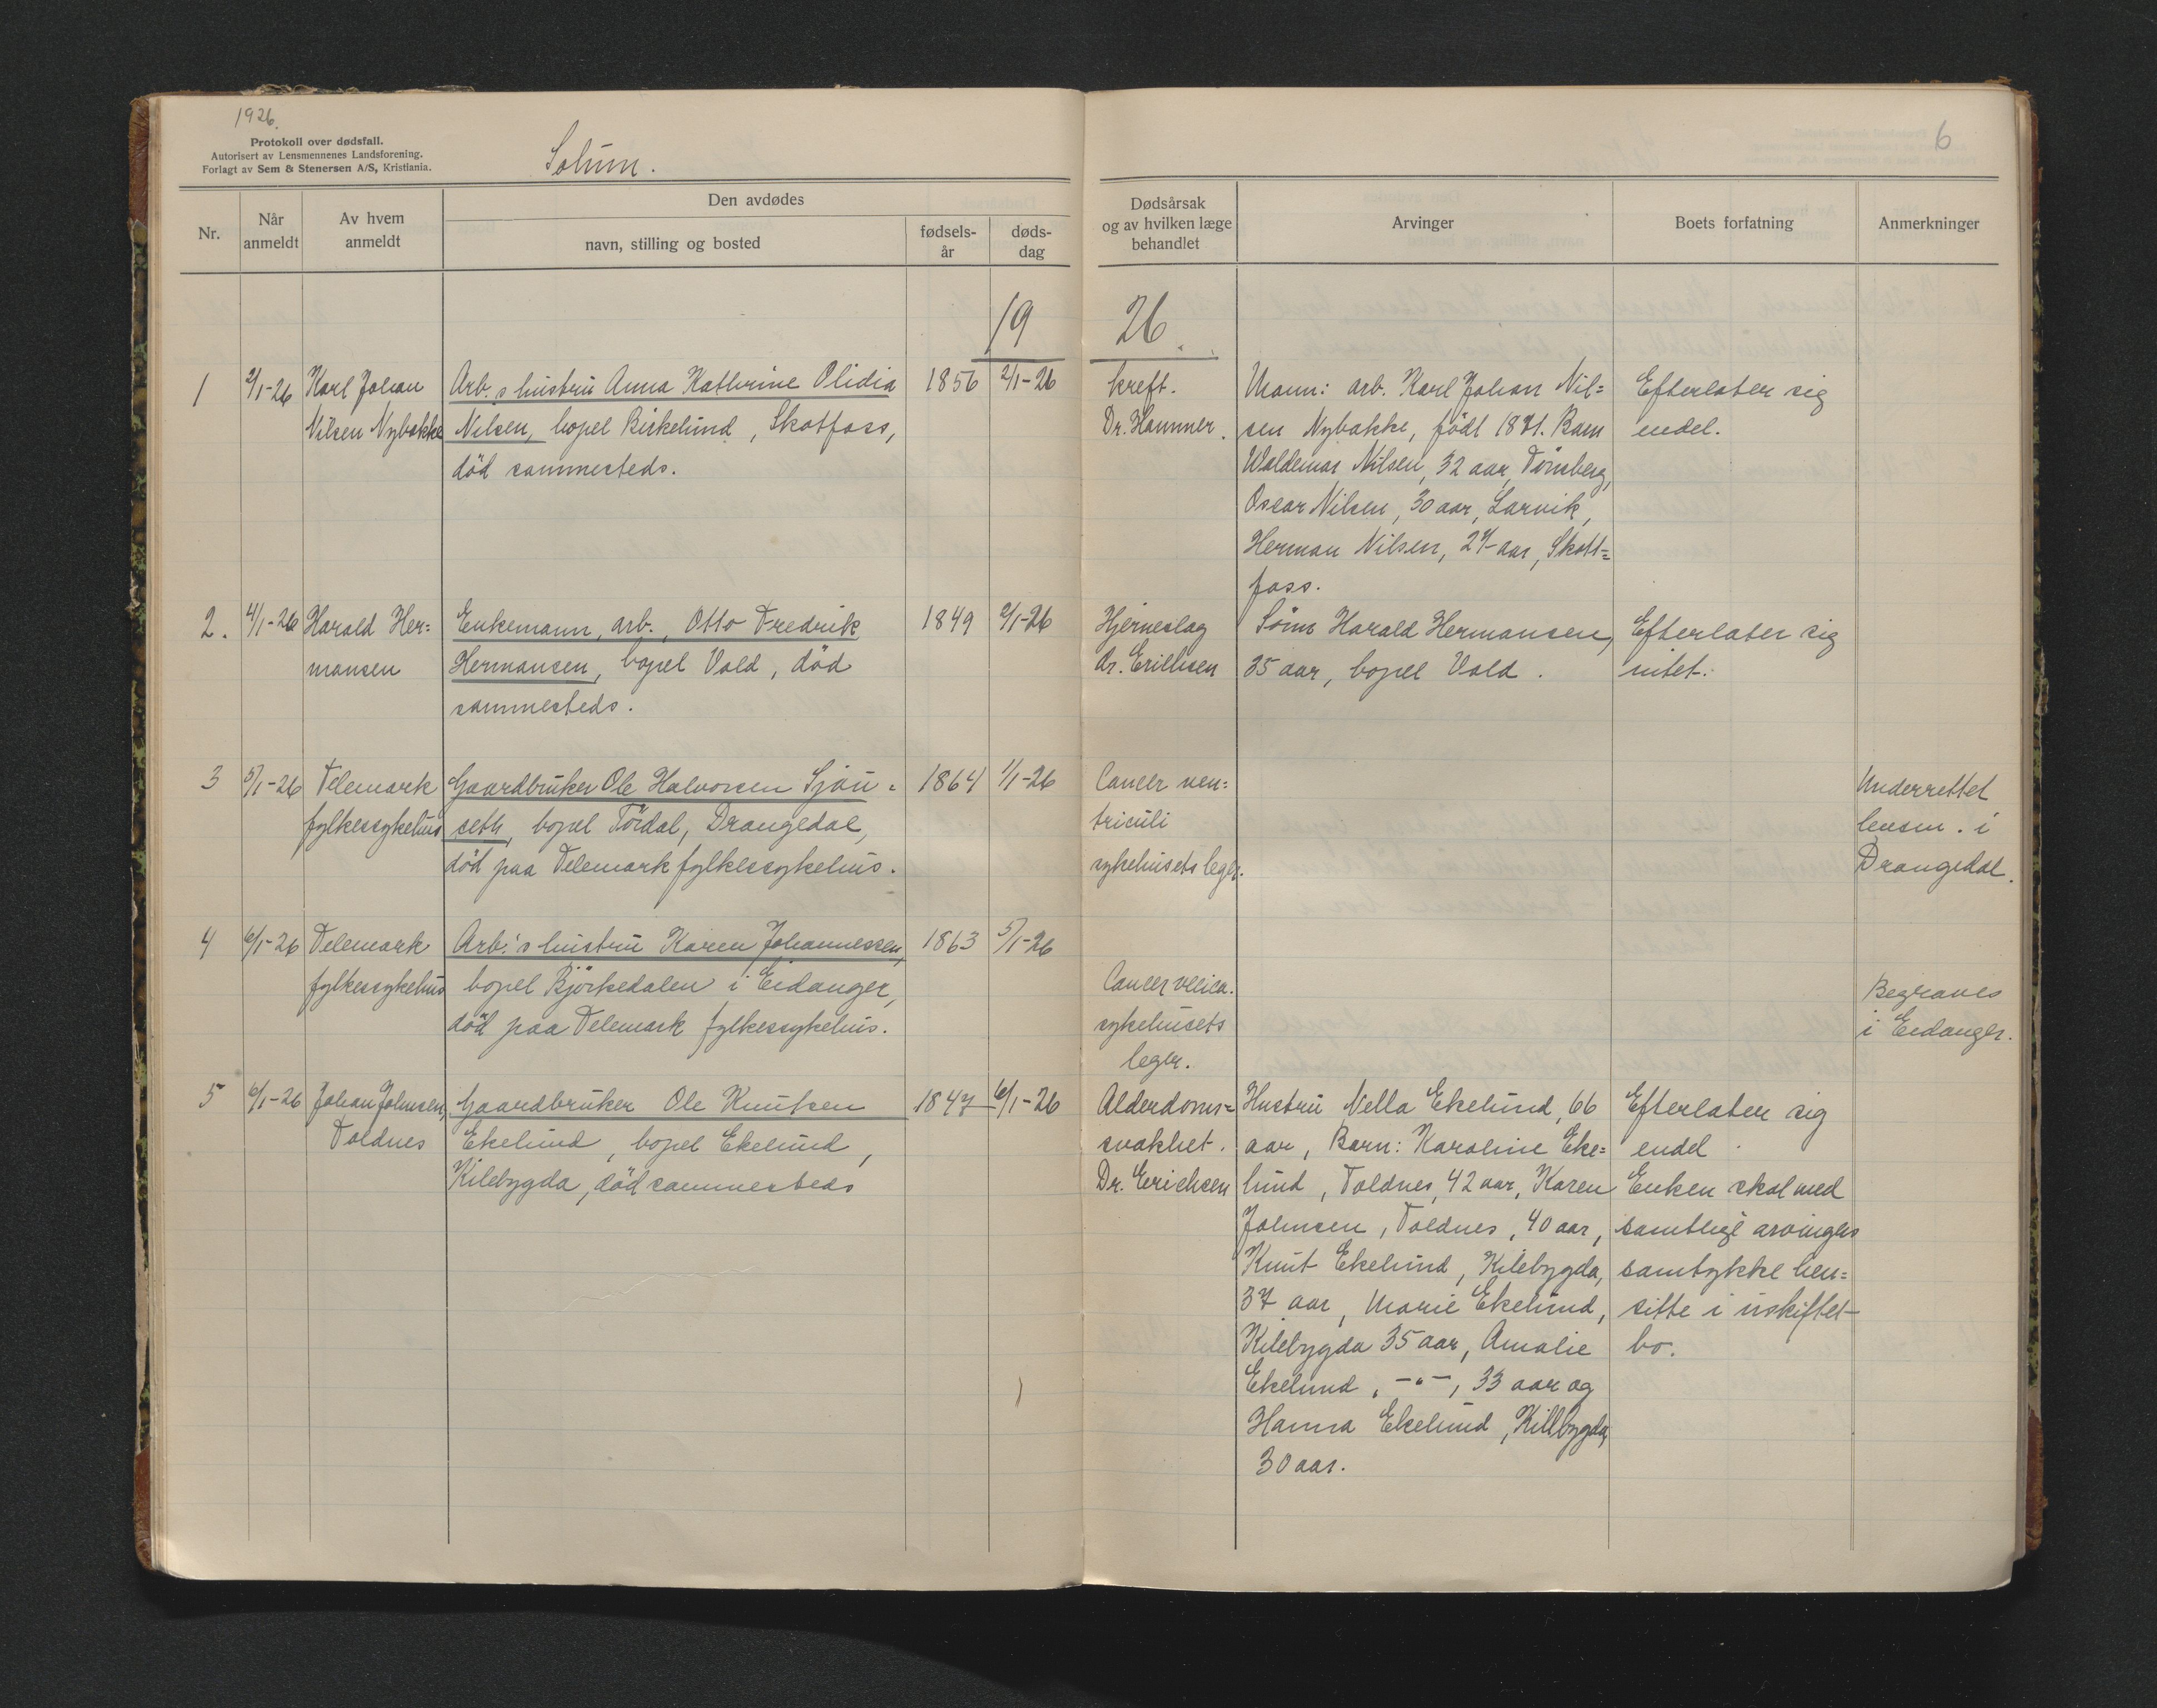 1926.
Protokoll over dødsfall.
Autorisert av Lensmennenes Landsforening.
Forlagt av Sem & Stenersen A/S, Kristiania.
Solum.
6
Nr.
Når anmeldt
Av hvem anmeldt
Den avdødes
navn, stilling og bosted
fødselsår
dødsdag
Dødsårsak
og av hvilken læge
behandlet
Arvinger
Boets forfatning
Anmerkninger
19 26.
1
2/1-26
Karl Johan
Nilsen Nybakke
Arb.s hustru Anna Kathrine Olidia
Nilsen, bopel Birkelund, Skotfoss,
död sammesteds.
1856
2/1-26
kreft.
Dr. Hammer.
Mann: arb. Karl Johan Nil=
sen Nybakke, födt 1871. Barn
Waldemar Nilsen, 32 aar, Tönsberg,
Oscar Nilsen, 30 aar, Larvik,
Herman Nilsen, 27 aar, Skott=
foss.
Efterlater sig
endel.
2.
4/1-26
Harald Her=
mansen
Enkemann, arb., Otto Fredrik
Hermansen, bopel Vold, död
sammesteds.
1849
2/1-26
Hjerneslag
Dr. Erichsen
Sönn Harald Hermansen,
35 aar, bopel Vold.
Efterlater sig
intet.
3
5/1-26
Telemark
fylkessykehus
Gaardbruker Ole Halvorsen Sjau=
seth, bopel Tördal, Drangedal,
död paa Telemark fylkessykehus.
1864
1/1-26
Cancer ven=
triculi
sykehusets leger.
Underrettet
lensm. i
Drangedal.
4
6/1-26
Telemark
fylkessykehus
Arb.'s hustru Karen Johannessen,
bopel Björkedalen i Eidanger,
död paa Telemark fylkessykehus.
1863
5/1-26
Cancer vesica.
sykehusets
leger.
Begraves
i Eidanger.
5
6/1-26
Johan Johnsen,
Toldnes
Gaardbruker Ole Knutsen
Ekelund, bopel Ekelund,
Kilebygda, död sammesteds
1847
6/1-26
Alderdoms=
svakhet.
Dr. Erichsen
Hustru Nella Ekelund, 66
aar, Barn: Karoline Eke=
lund, Toldnes, 42 aar, Karen
Johnsen, Toldnes, 40 aar,
Knut Ekelund, Kilebygda,
37 aar, Marie Ekelund,
Kilebygda 35 aar, Amalie
Ekelund, -"-, 33 aar og
Hanna Ekelund, Kilebygda,
30 aar.
Efterlater sig
endel.
Enken skal med
samtlige arvingers
samtykke hen=
sitte i uskiftet
bo.